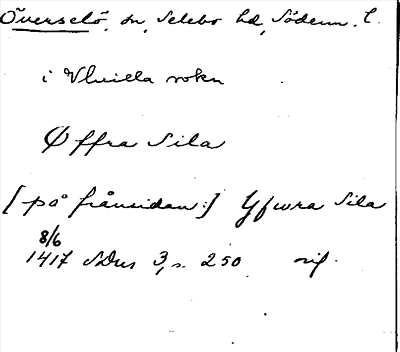 Överselö, sn, Selebo hd, Söderm. l.
i Vhuilla sokn
Øffra Sila
[på frånsidan:] Yfwra Sila
8/6
1417 SDns 3, s. 250 orig.